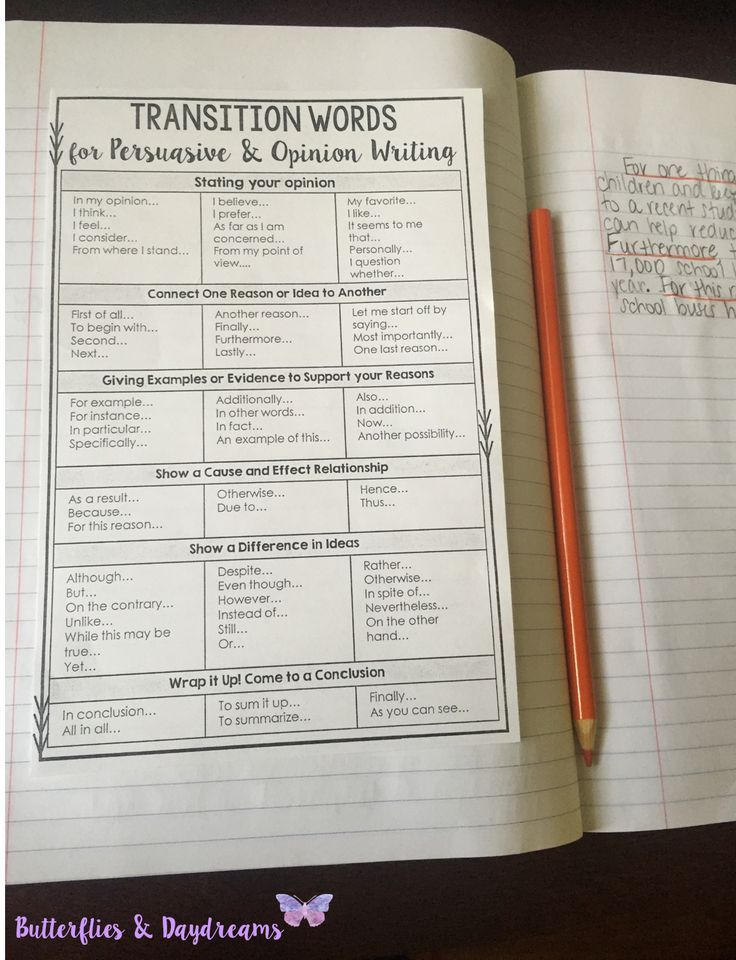 TRANSITION WORDS
for Persuasive & Opinion Writing
Stating your opinion
In my opinion...
I think...
I feel...
I consider...
From where I stand...
I believe...
I prefer...
As far as I am
concerned...
From my point of
view....
My favorite...
I like...
It seems to me
that...
Personally...
I question
whether...
Connect One Reason or Idea to Another
First of all...
To begin with...
Second...
Next...
Another reason...
Finally...
Furthermore...
Lastly...
Let me start off by
saying...
Most importantly...
One last reason...
Giving Examples or Evidence to Support your Reasons
For example...
For instance...
In particular...
Specifically...
Additionally...
In other words...
In fact...
An example of this...
Also...
In addition...
Now...
Another possibility...
Show a Cause and Effect Relationship
As a result...
Because...
For this reason...
Otherwise...
Due to...
Hence...
Thus...
Show a Difference in Ideas
Although...
But...
On the contrary...
Unlike...
While this may be
true...
Yet...
Despite...
Even though...
However...
Instead of...
Still...
Or...
Rather...
Otherwise...
In spite of...
Nevertheless...
On the other
hand...
Wrap it Up! Come to a Conclusion
In conclusion...
All in all...
To sum it up...
To summarize...
Finally...
As you can see...
For one thing
children and
to a recent
can help
Furthermore,
17,000 school
year. For this
school buses
Butterflies & Daydreams